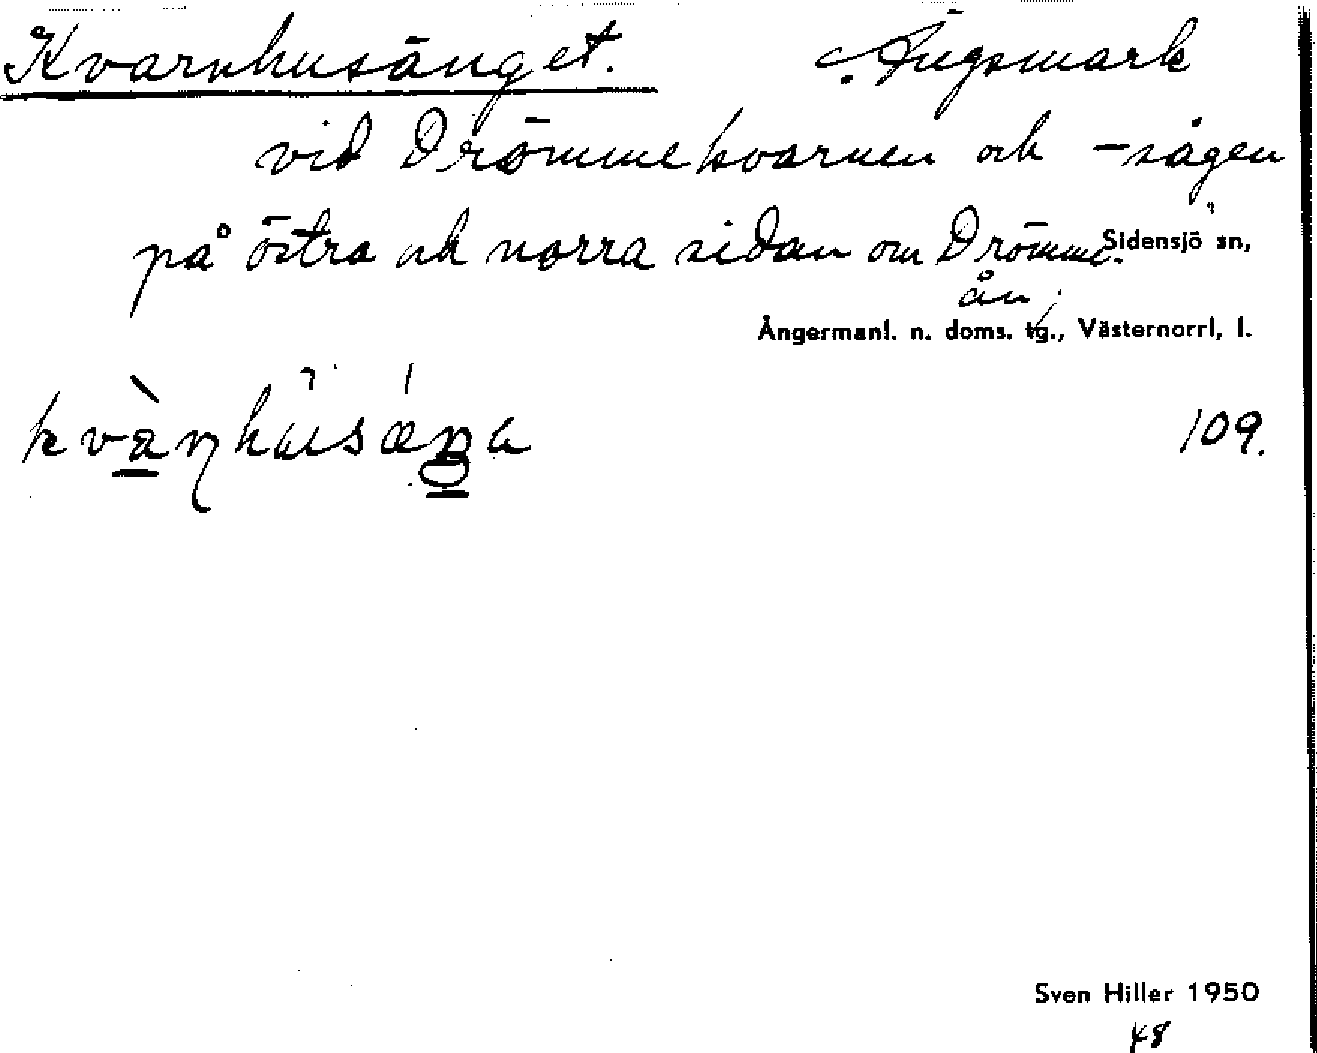 Kvarnhusänget. Ängsmark
vid Drömmekvarnen och -sågen
på östra och norra sidan om Drömme-
Sidensjö sn,
ån
Ångermanl. n. doms. tg., Västernorrl, l.
109.
Sven Hiller 1950
48